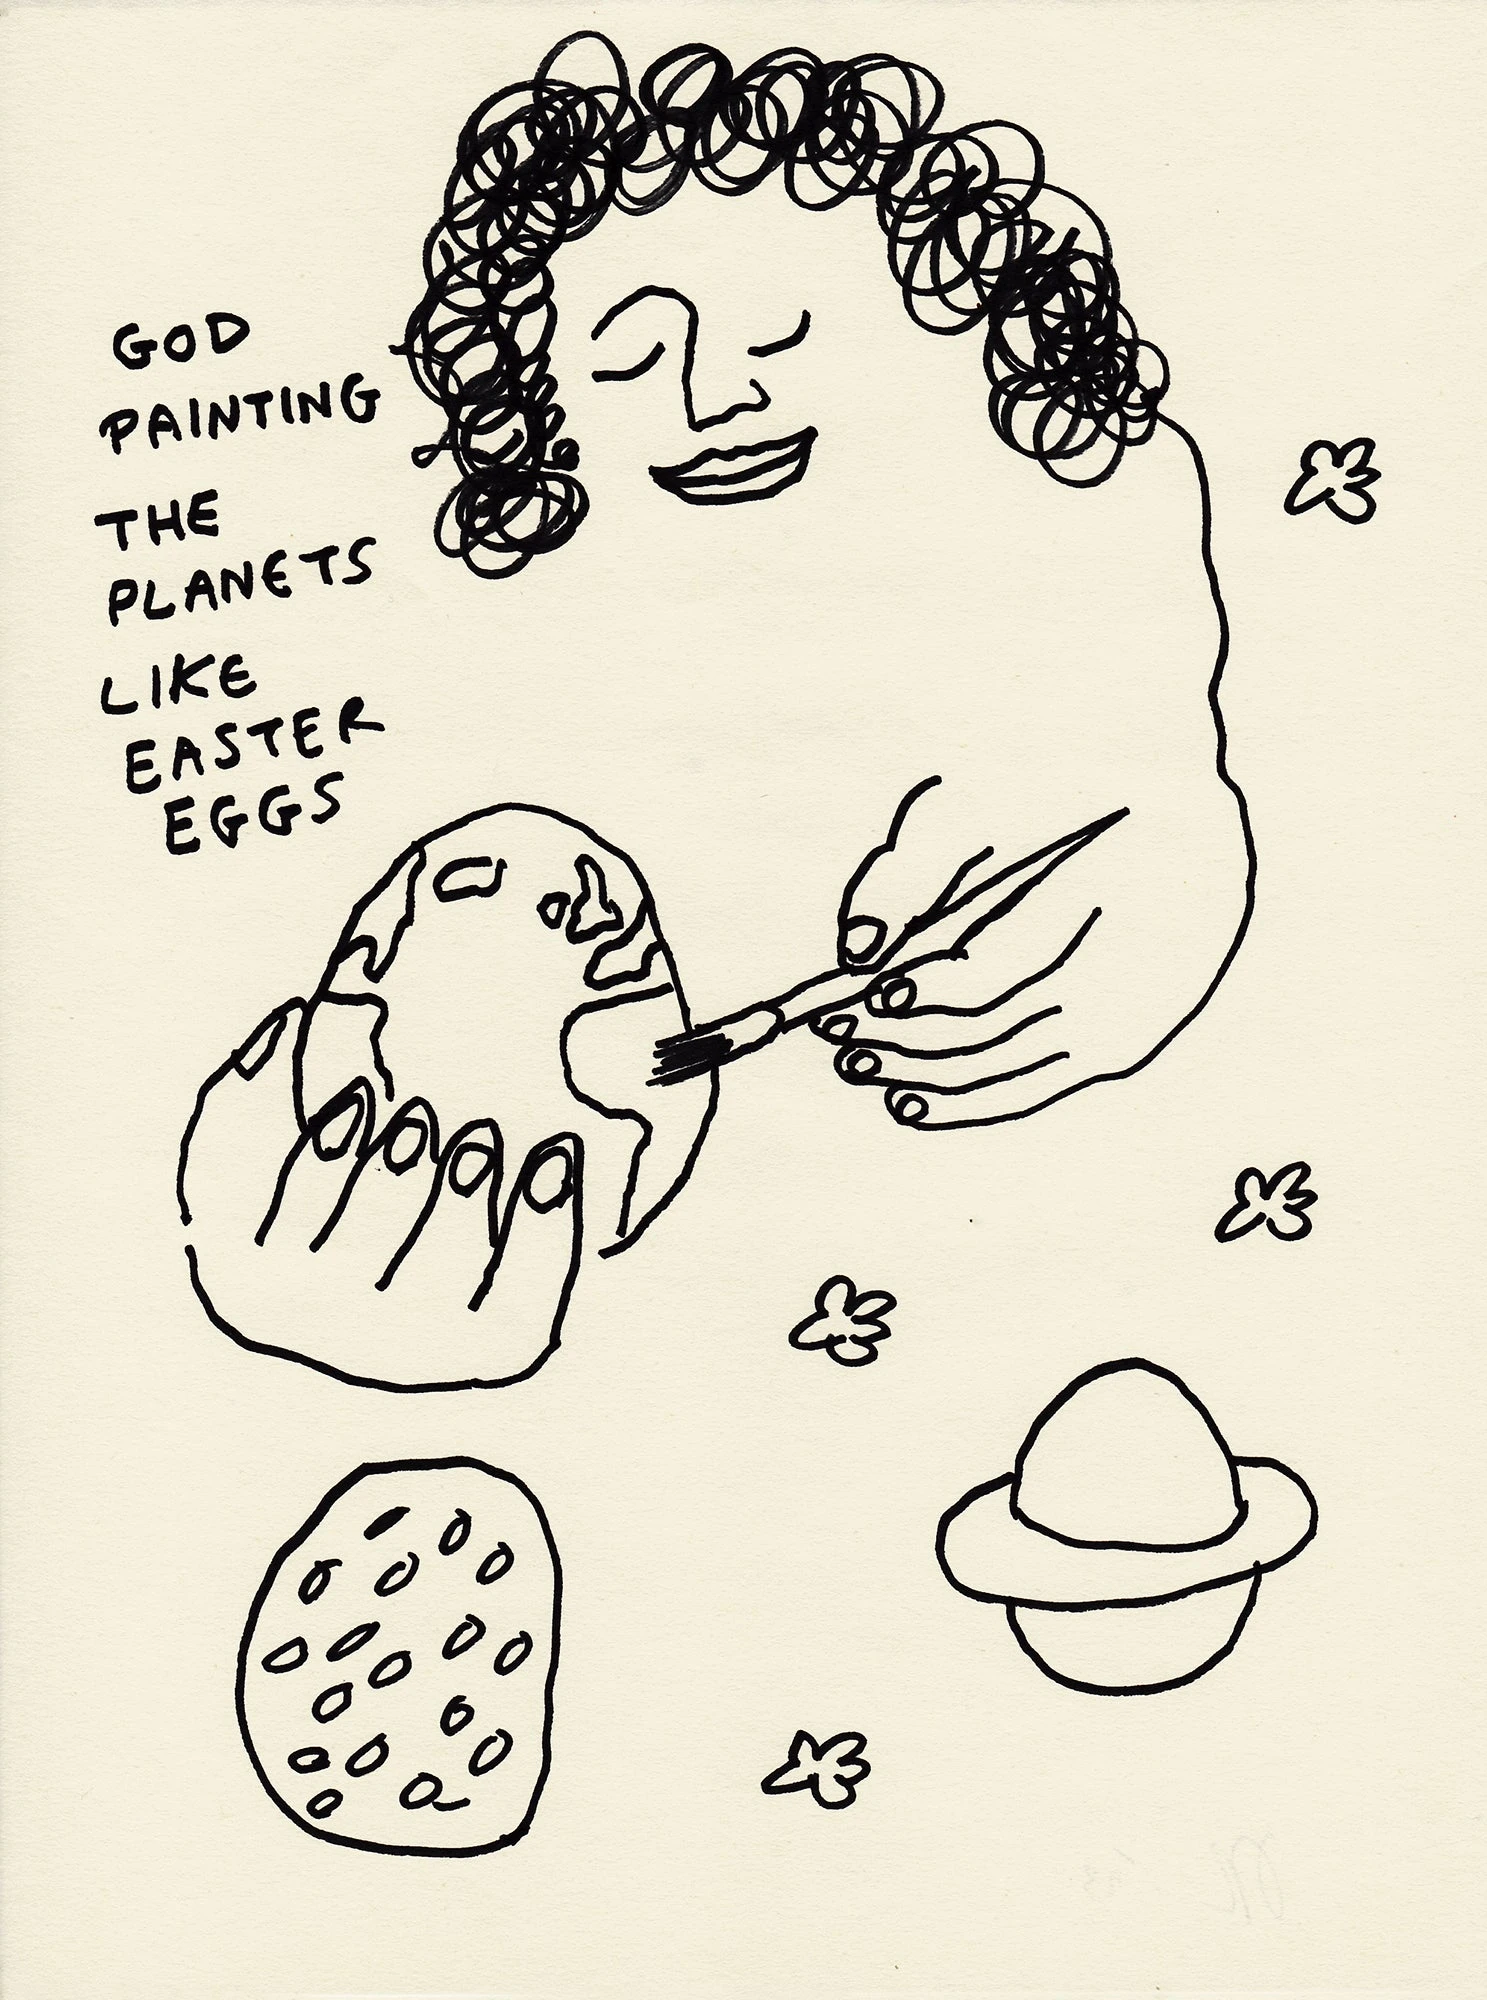 GOD
PAINTING
THE
PLANETS
LIKE
EASTER
EGGS